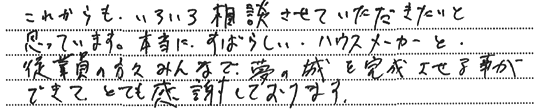 これからも、いろいろ相談させていただきたいと
思っています。本当に、すばらしい、ハウスメーカーと、
従業員の方々みんなで、夢の城を完成させる事が
できて、とても感謝しております。